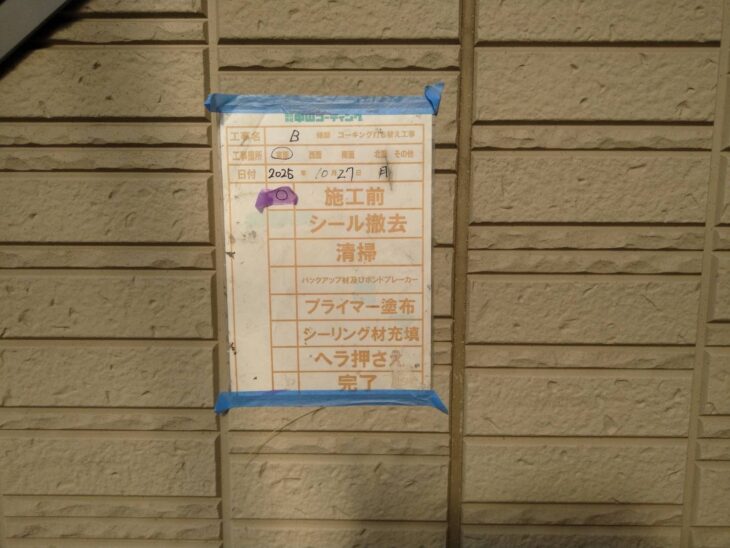 中山コーティング
工事名 B 様邸 コーキング打ち替え工事
工事箇所 東面 西面 南面 北面 その他
日付 2025年 10月27日 月
○ 施工前
シール撤去
清掃
バックアップ材及びボンドブレーカー
プライマー塗布
シーリング材充填
ヘラ押さえ
完了